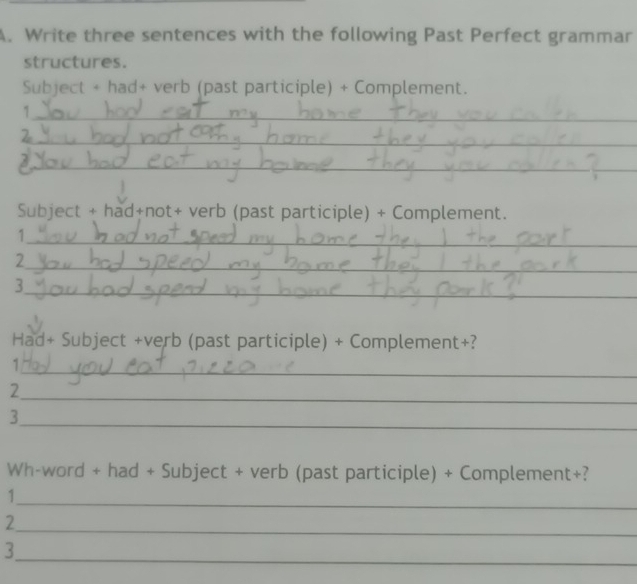 A. Write three sentences with the following Past Perfect grammar
structures.
Subject + had+ verb (past participle) + Complement.
1 You had eat my home they you
2 You had not eat my home they you
3 You had eat my home they you ?
Subject + had+not+ verb (past participle) + Complement.
1 You had not speed my home they I the park
2 You had speed my home they I the park
3 You had speed my home they park?
Had+ Subject +verb (past participle) + Complement+?
1 Had you eat pizza
2
3
Wh-word + had + Subject + verb (past participle) + Complement+?
1
2
3